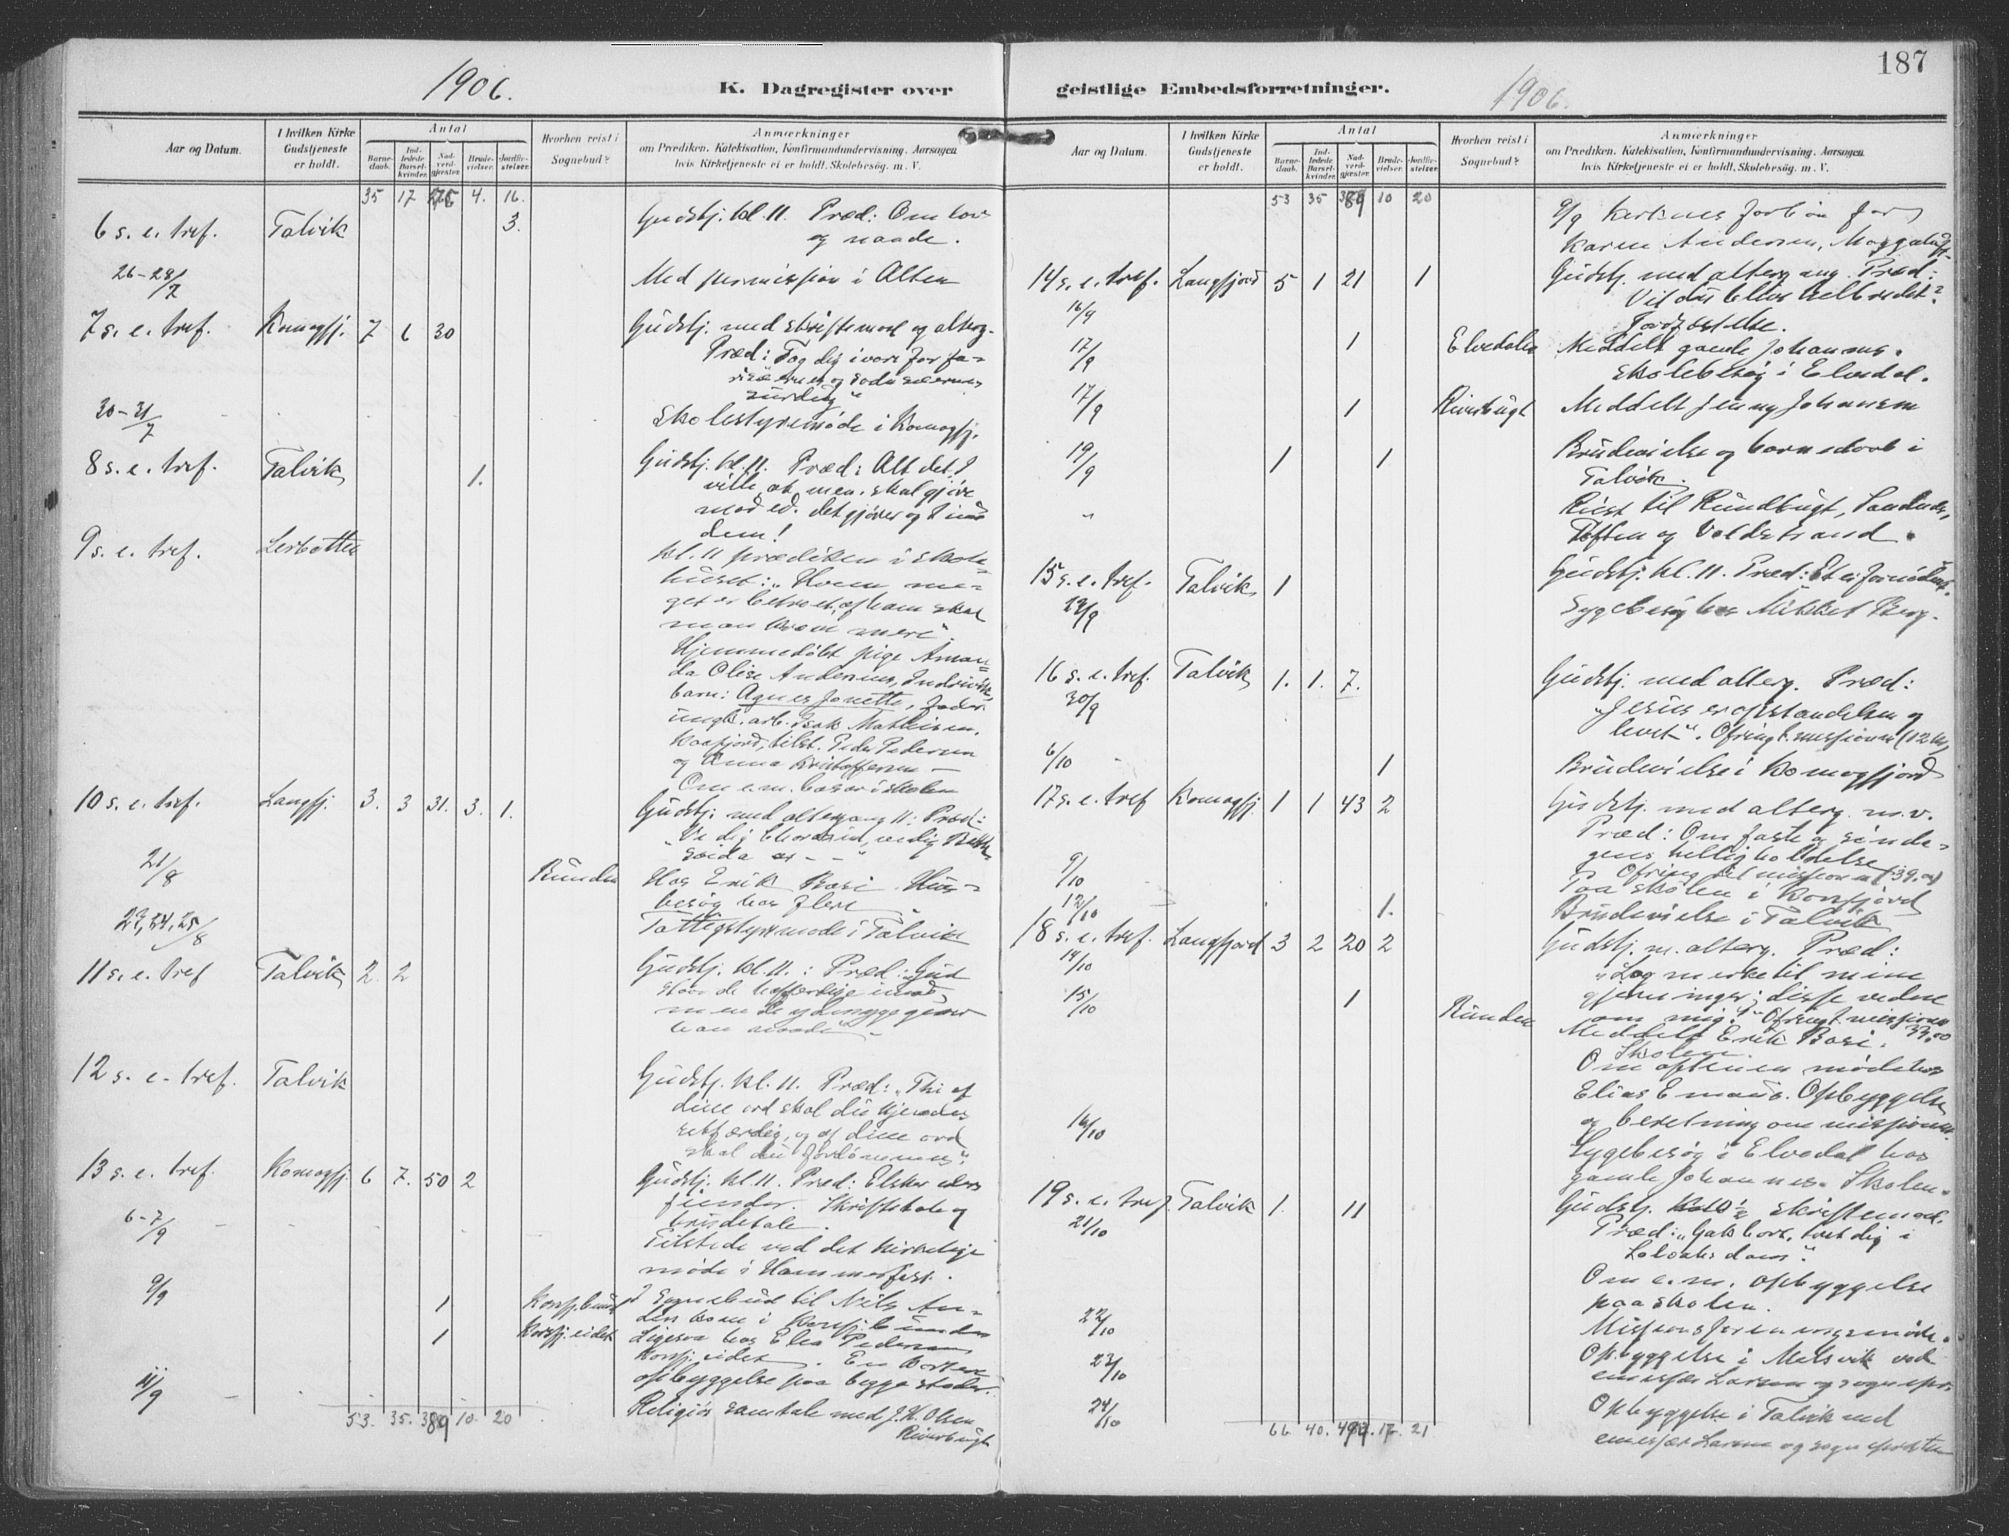 187
1906.
K. Dagregister over
geistlige Embedsforretninger.
1906.
Aar og Datum.
I hvilken Kirke Gudstjeneste er holdt.
Antal
Barnedaab.
Indledede Barselkvinder.
Nadverdgjæster.
Brudevielser.
Jordfæstelser.
Hvorhen reist i Sognebud?
Anmærkninger
om Prædiken. Katekisation. Konfirmandundervisning. Aarsagen
hvis Kirketjeneste ei er holdt. Skolebesøg. m. V.
35 17 4. 16.
6 s. e. tref. Talvik 3. Gudstj. kl. 11. Præd: Om lov
og naade.
26-28/7 Med permission i Alten
7 s. e. tref. Komagfj. 7 6 30 Gudstj. med skriftemaal og alterg.
Præd: Tag dig i vare for fa-
risæernes og sadusæernes
surdeig"
30-31/7 Skolestyremöde i Komagfj.
8 s. e. tref. Talvik 1. Gudstj. kl. 11. Præd: Alt det I
ville, at men. skal gjöre
mod ed. det gjörer og I imod
dem!
9 s. e. tref. Lerbotten kl. 11 prædiken i skole-
huset: "Hvem me-
get er betroet, af ham skal
man kræve mere".
Hjemmedöbt pige Aman-
da Olise Andersens,
barn: Agnes Jonette, fader
ungk. arb. Isak Mathisen.
Kaafjord, tilst. Peder Pedersen
og Anna Kristoffersen —
Om e.m. basar i skolen
10 s. e. tref. Langfj. 3. 3 31. 3. 1. Gudstj. med altergang 11: Præd:
"Ve dig Chorasin, ve dig Beth-
saida - - "
21/8 Runden Hos Erik Basi. Hus-
besög hos flere
23, 24, 25/8 Fattigstyremöde i Talvik
11 s. e. tref Talvik 2. 2 Gudstj. kl. 11.: Præd: Gud
staar de hoffærdige imod,
men de ydmyge giver
han naade" -
12 s. e. tref. Talvik Gudstj. kl. 11. Præd: "Thi af
dine ord skal du kjendes
retfærdig, og af dine ord
skal du fordömmes".
13 s. e. tref. Komagfj. 6 7. 50 2 Gudstj. kl 11. Præd: Elsker eders
fiender. Skriftetale og
brudetale.
6-7/9 Tilstede ved det kirkelige
möde i Hammerfest.
9/9 1 I sognebud til Nils An-
1 Ligesaa hos Elen Pedersen
Korsfj. eidet. En kort
opbyggelse paa begge steder.
11/9 Religiös samtale med J. K. Olsen
Riverbugt
53. 35. 389 10. 20
Aar og Datum.
I hvilken Kirke Gudstjeneste er holdt.
Antal
Barnedaab.
Indledede Barselkvinder.
Nadverdgjæster.
Brudevielser.
Jordfæstelser.
Hvorhen reist i Sognebud?
Anmærkninger
om Prædiken. Katekisation. Konfirmandundervisning. Aarsagen
hvis Kirketjeneste ei er holdt. Skolebesøg. m. V.
53 35 389 10 20
9/9 Kirkens forbön for
Karen Andersen,
14 s. e. tref. Langfjord 5 1 21 1 Gudstj. med altergang. Præd:
16/9 Vil du blive helbredet?
Jordfæstelse.
17/9 1 Elvedalen Meddelt gamle Johannes.
Skolebesög i Elvedal.
17/9 1 Riverbugt Meddelt Jenny Johansen
19/9 1 1 Brudevielse og barnedaab i
Talvik.
" Reist til Rundbugt,
Toften og Voldstrand.
15 s. e. tref. Talvik 1 Gudstj. kl. 11. Præd: Et er fornödent.
23/9 Sygebesög hos Mikkel Berg.
16 s. e. tref. Talvik 1. 1. 7. Gudstj. med alterg. Præd:
30/9 "Jesus er opstandelsen og
livet". Ofring t. missionen (12 kr)
6/10 1 Brudevielse i Komagfjord
17 s. e. tref Komagfj. 1 1 43 2 Gudstj. med alterg. m.v.
Præd: Om faste og sönda-
gens helligholdelse
Ofring til missionen (39.00)
9/10 Paa skolen i Korsfjord
12/10 1. Brudevielse i Talvik
18 s. e. tref. Langfjord 3 2 20 2 Gudstj. m. alterg. Præd:
14/10 "Læg merke til mine
gjerninger; disse vidne
om mig." Ofring t. missionen
33.00
15/10 1 Runden Meddelt Erik Basi.
Skolen.
Om aftenen möde hos
Elias Emaus. Opbyggelse
og beretning om missionen.
16/10 Sygebesög i Elvedal hos
gamle Johannes. Skolen.
19 s. e. tref. Talvik 1. 11 Gudstj. skriftemaal.
21/10 Præd: "Gak bort, tvæt dig i
Siloahs dam".
Om e.m. opbyggelse
paa skolen.
22/10 Missionsforeningsmöde.
23/10 Opbyggelse i Melsvik ved
emissær Larsen og sognepres
24/10 Opbyggelse i Talvik ved
emissær Larsen og sognepresten
66 40. 21